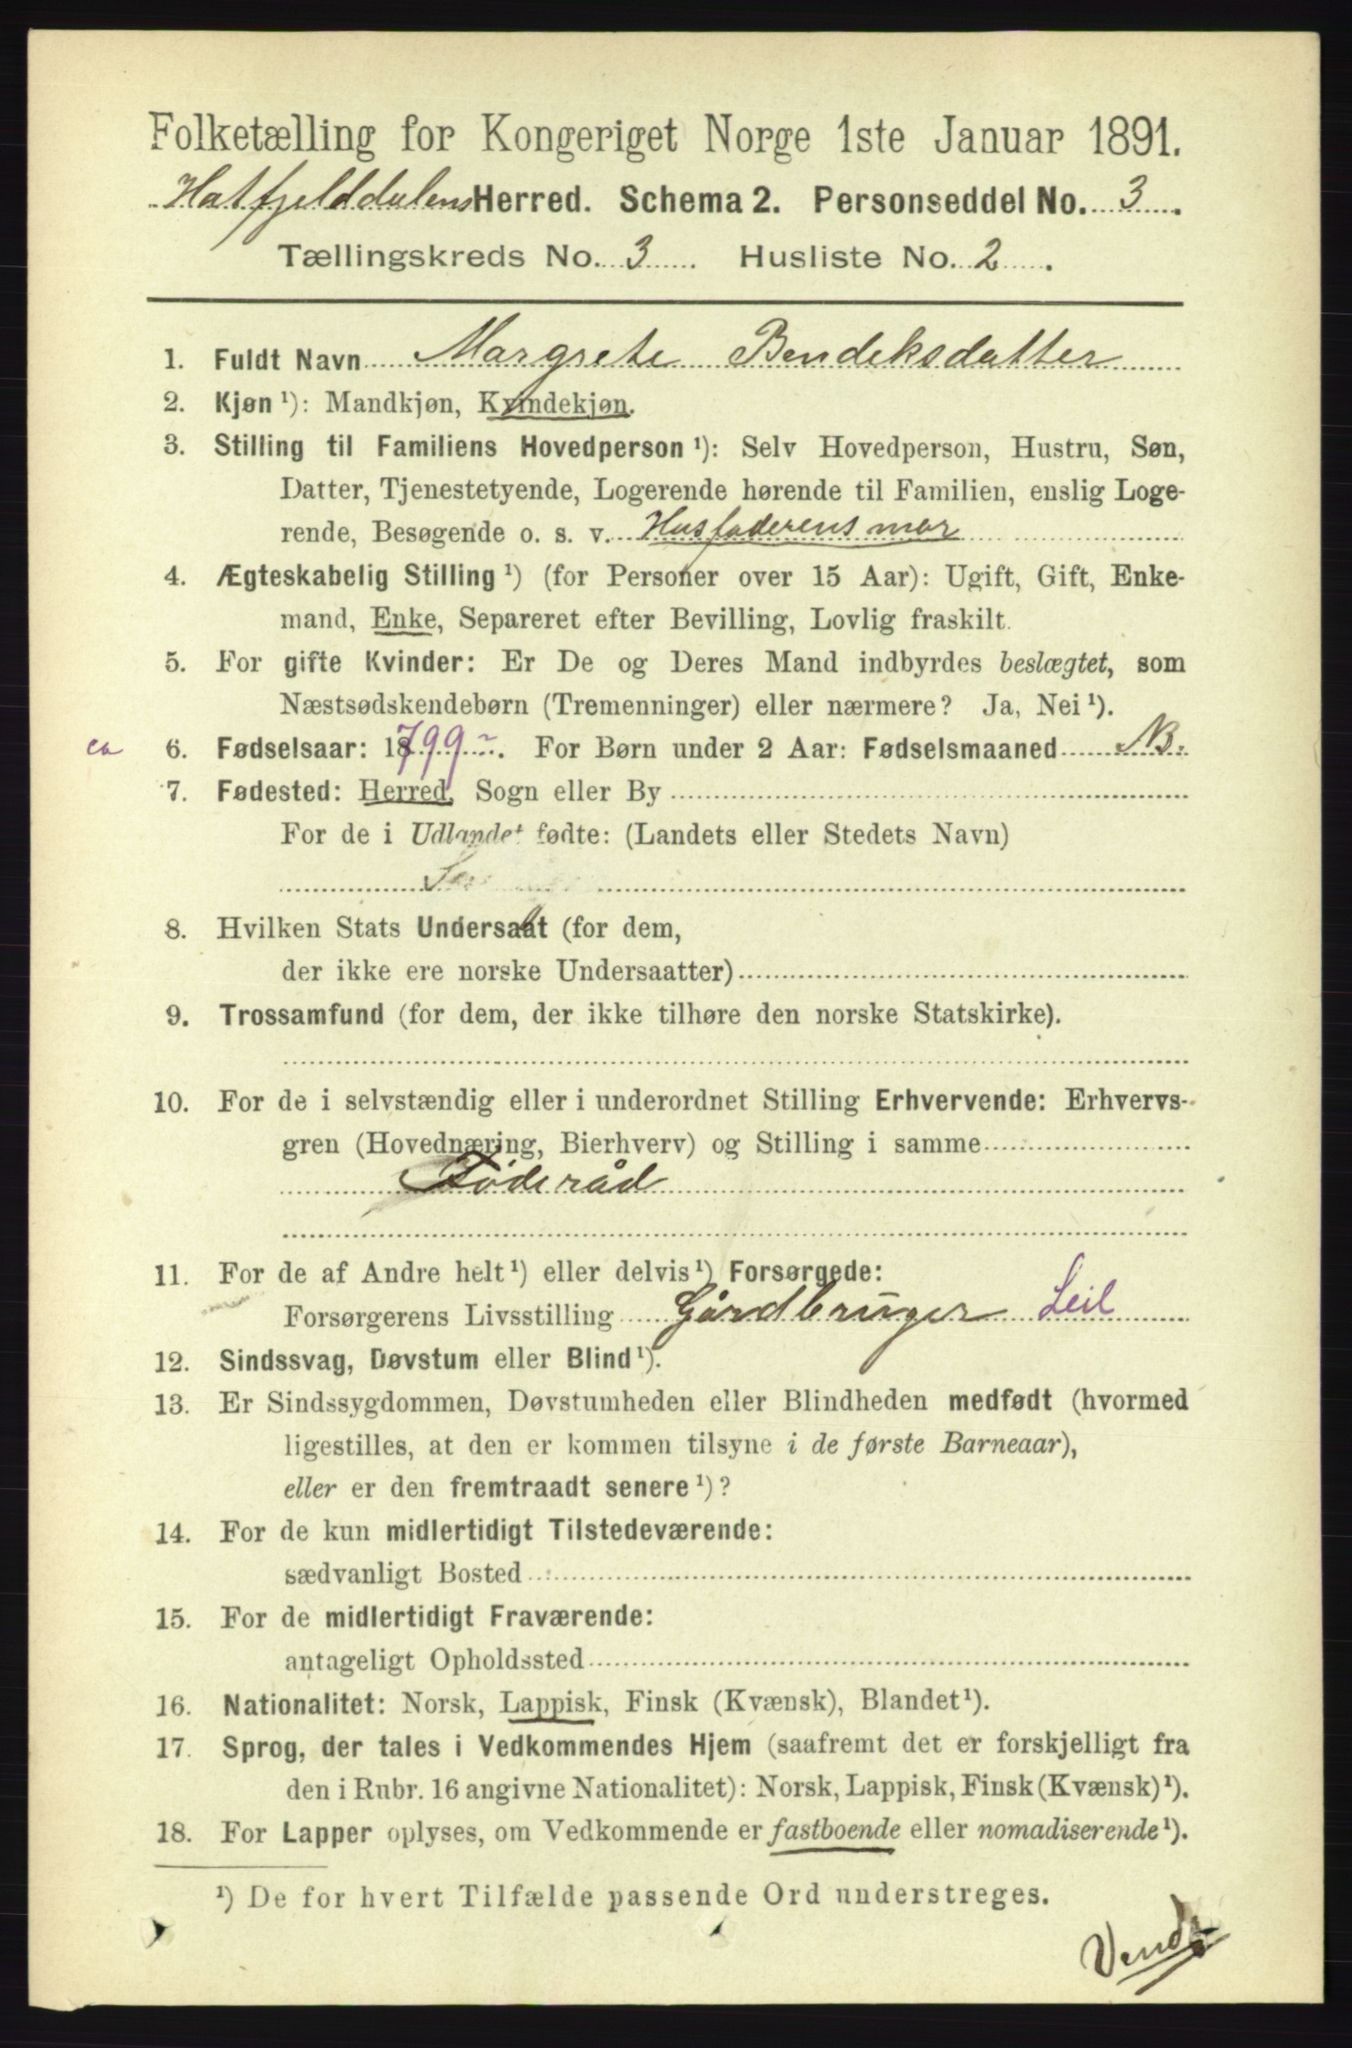 Folketælling for Kongeriget Norge 1ste Januar 1891.
Hatfjelddalens Herred. Schema 2. Personseddel No. 3.
Tællingskreds No. 3 Husliste No. 2.
1. Fuldt Navn Margrete Bendeksdatter
2. Kjøn ¹): Mandkjøn, Kvindekjøn.
3. Stilling til Familiens Hovedperson ¹): Selv Hovedperson, Hustru, Søn,
Datter, Tjenestetyende, Logerende hørende til Familien, enslig Loge-
rende, Besøgende o. s. v. Husfaderens mor
4. Ægteskabelig Stilling ¹) (for Personer over 15 Aar): Ugift, Gift, Enke-
mand, Enke, Separeret efter Bevilling, Lovlig fraskilt.
5. For gifte Kvinder: Er De og Deres Mand indbyrdes beslægtet, som
Næstsødskendebørn (Tremenninger) eller nærmere? Ja, Nei ¹).
ca 6. Fødselsaar: 1799. For Børn under 2 Aar: Fødselsmaaned NB.
7. Fødested: Herred, Sogn eller By
For de i Udlandet fødte: (Landets eller Stedets Navn)
8. Hvilken Stats Undersaat (for dem,
der ikke ere norske Undersaatter)
9. Trossamfund (for dem, der ikke tilhøre den norske Statskirke).
10. For de i selvstændig eller i underordnet Stilling Erhvervende: Erhvervs-
gren (Hovednæring, Bierhverv) og Stilling i samme
Föderåd
11. For de af Andre helt ¹) eller delvis ¹) Forsørgede:
Forsørgerens Livsstilling Gårdbruger Leil
12. Sindssvag, Døvstum eller Blind ¹).
13. Er Sindssygdommen, Døvstumheden eller Blindheden medfødt (hvormed
ligestilles, at den er kommen tilsyne i de første Barneaar),
eller er den fremtraadt senere ¹)?
14. For de kun midlertidigt Tilstedeværende:
sædvanligt Bosted
15. For de midlertidigt Fraværende:
antageligt Opholdssted
16. Nationalitet: Norsk, Lappisk, Finsk (Kvænsk), Blandet ¹).
17. Sprog, der tales i Vedkommendes Hjem (saafremt det er forskjelligt fra
den i Rubr. 16 angivne Nationalitet): Norsk, Lappisk, Finsk (Kvænsk) ¹).
18. For Lapper oplyses, om Vedkommende er fastboende eller nomadiserende ¹).
¹) De for hvert Tilfælde passende Ord understreges.
Vendt